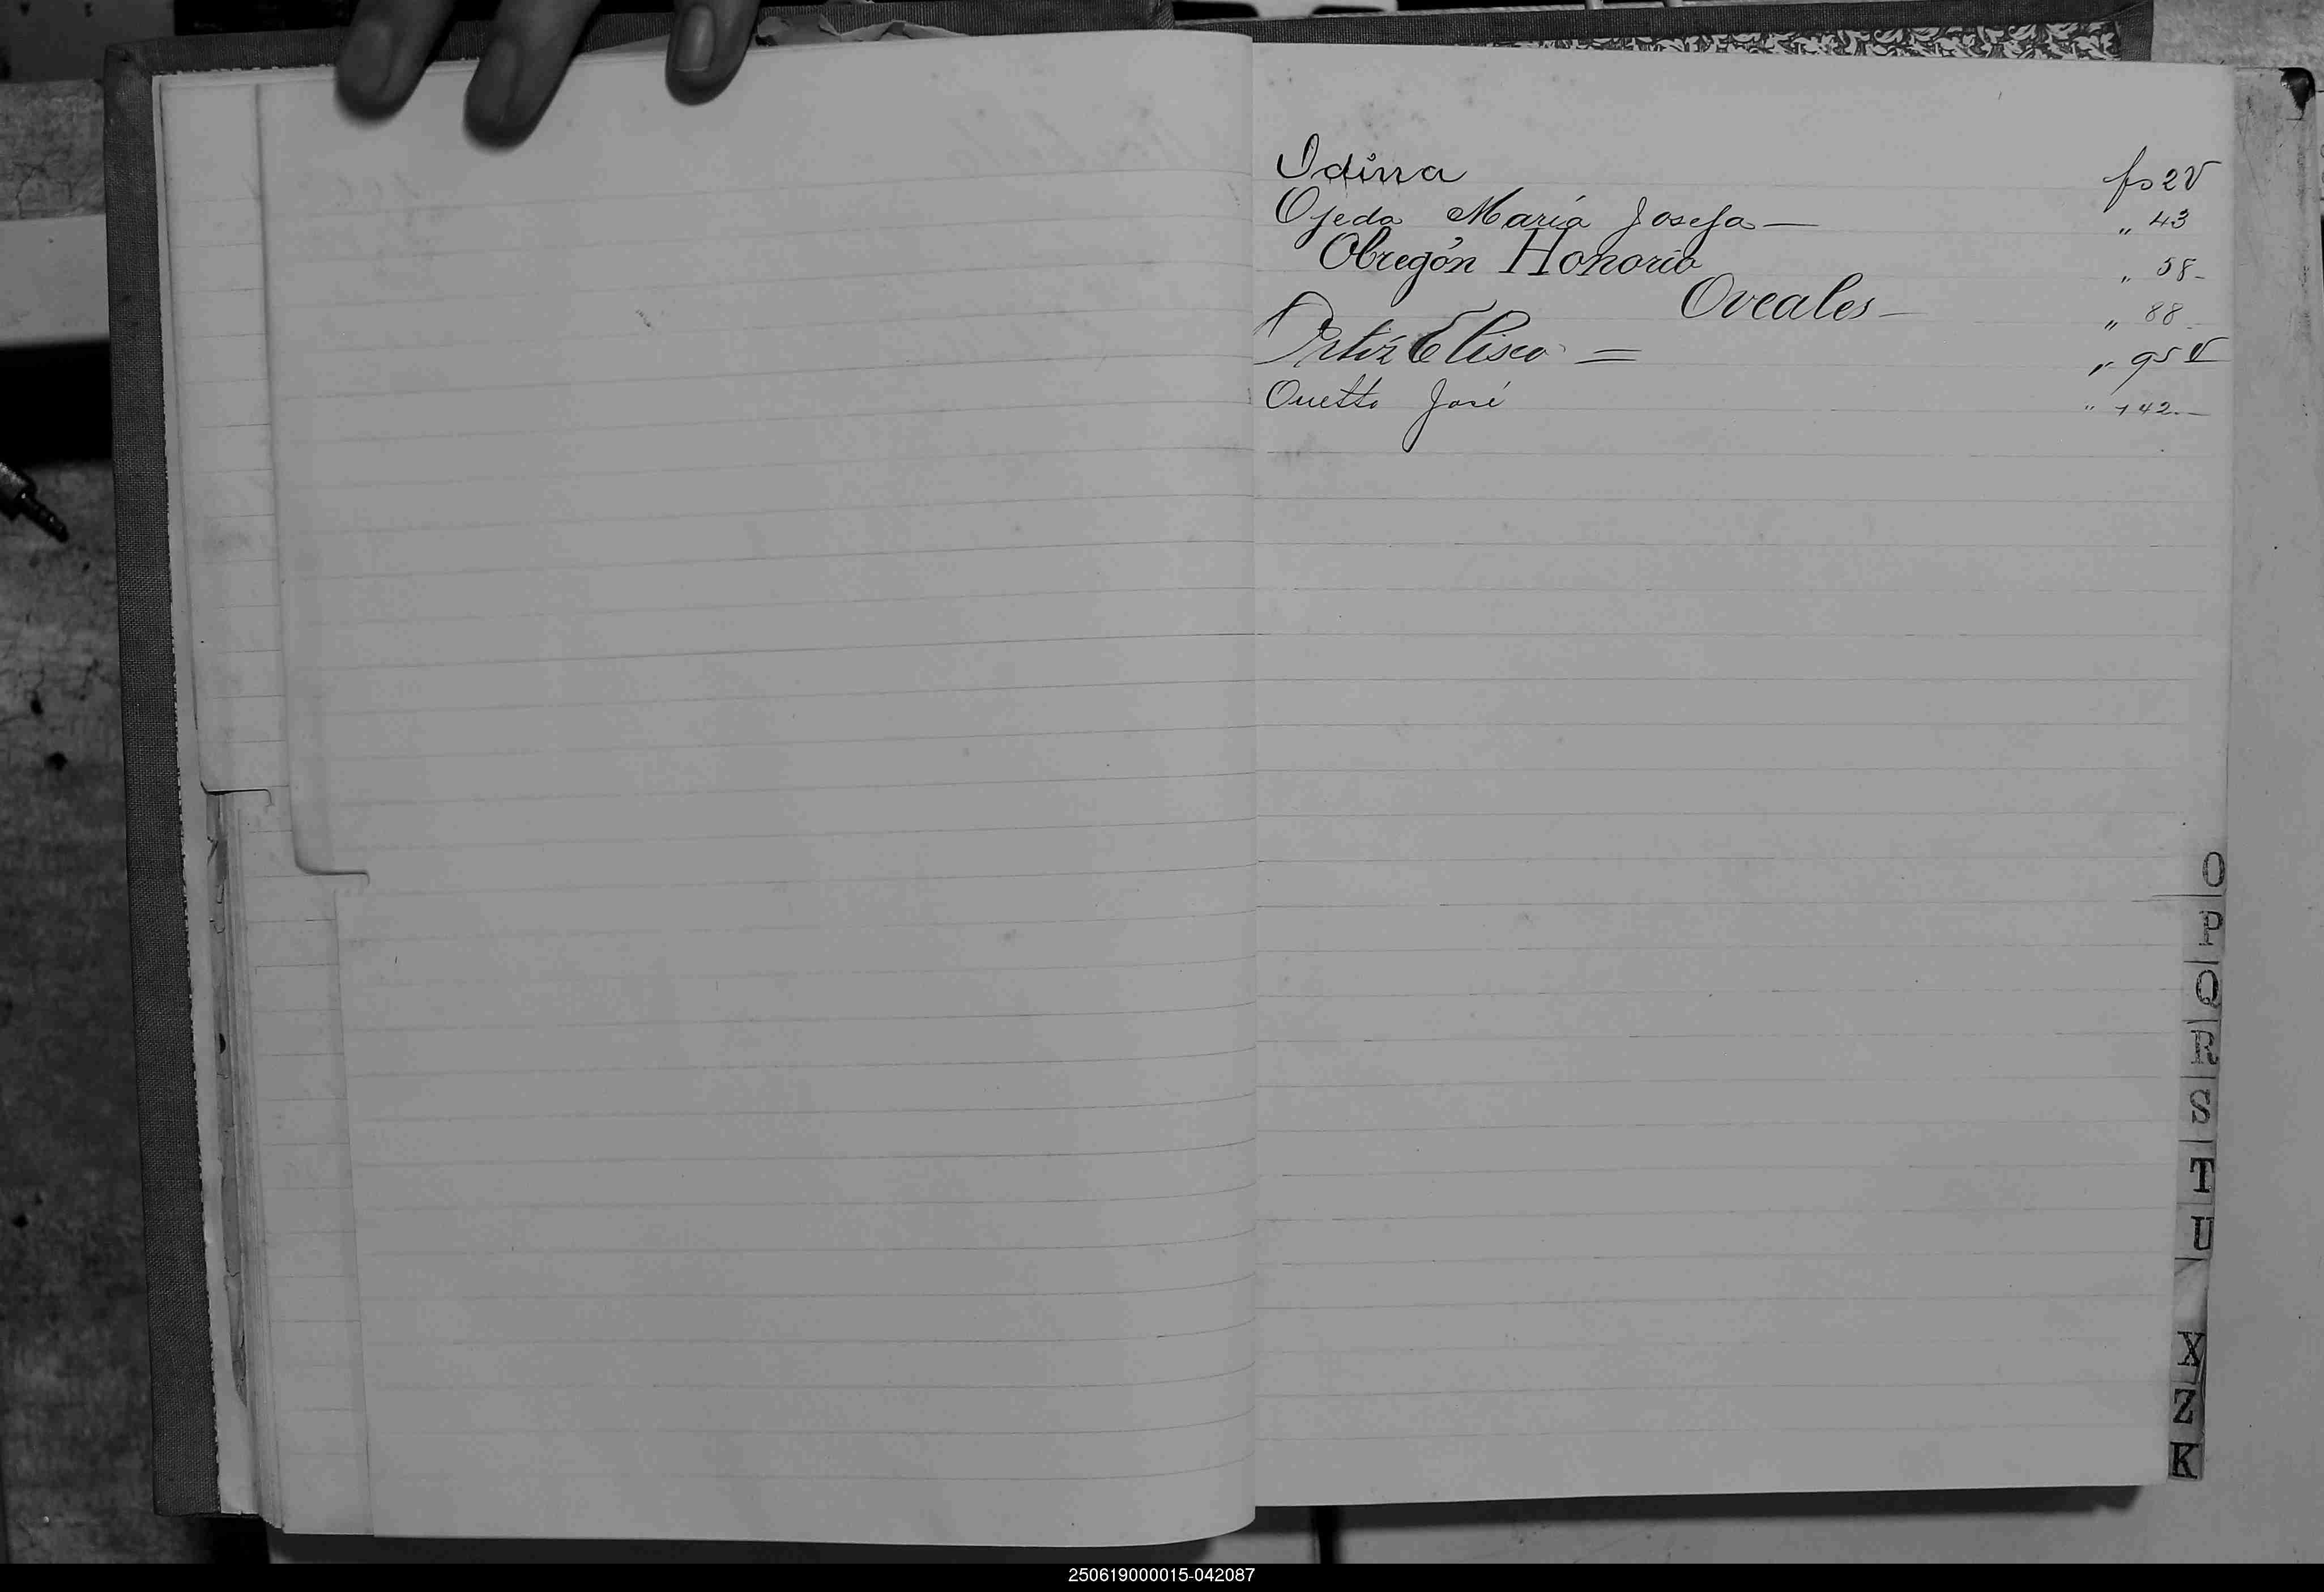 Odina fs 2 V
Ojeda María Josefa — " 43
Obregón Honorio " 58-
Oreales — " 88
Ortiz Eliseo = " 95 V
Onetto José " 142.—
O
P
Q
R
S
T
U
X
Z
K
250619000015-042087